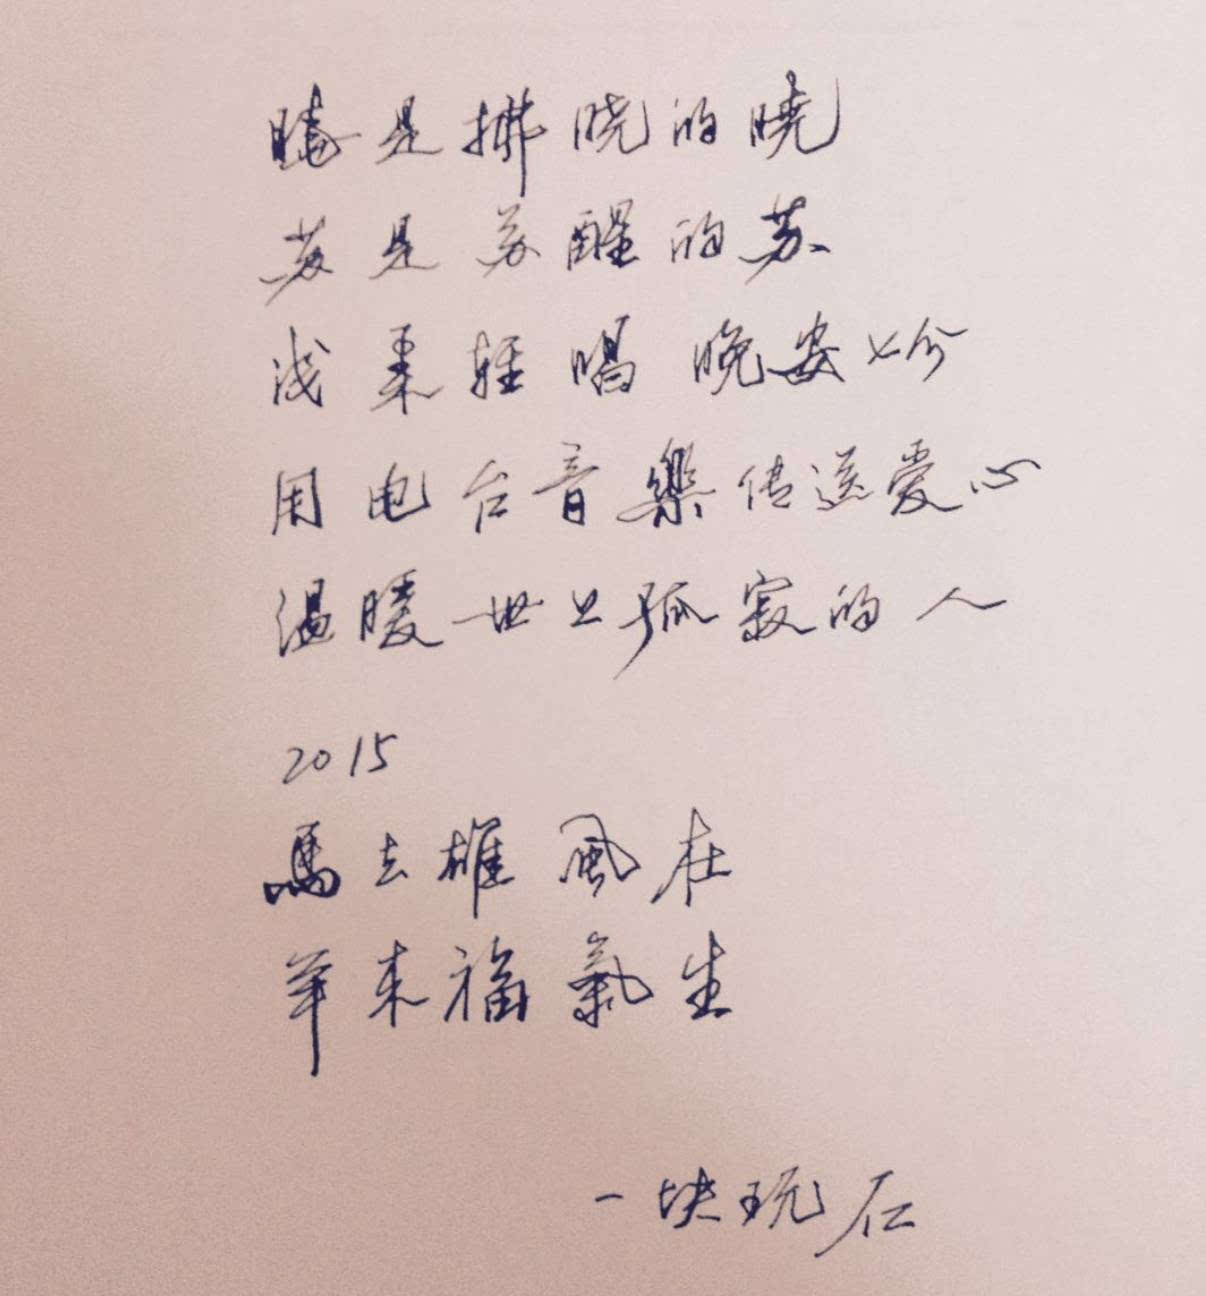 曉是拂晓的曉
苏是苏醒的苏
浅来轻唱 晚安七分
用电台音樂传送爱心
温暖世上孤寂的人
2015
馬去雄风在
羊来福氣生
一块玩石